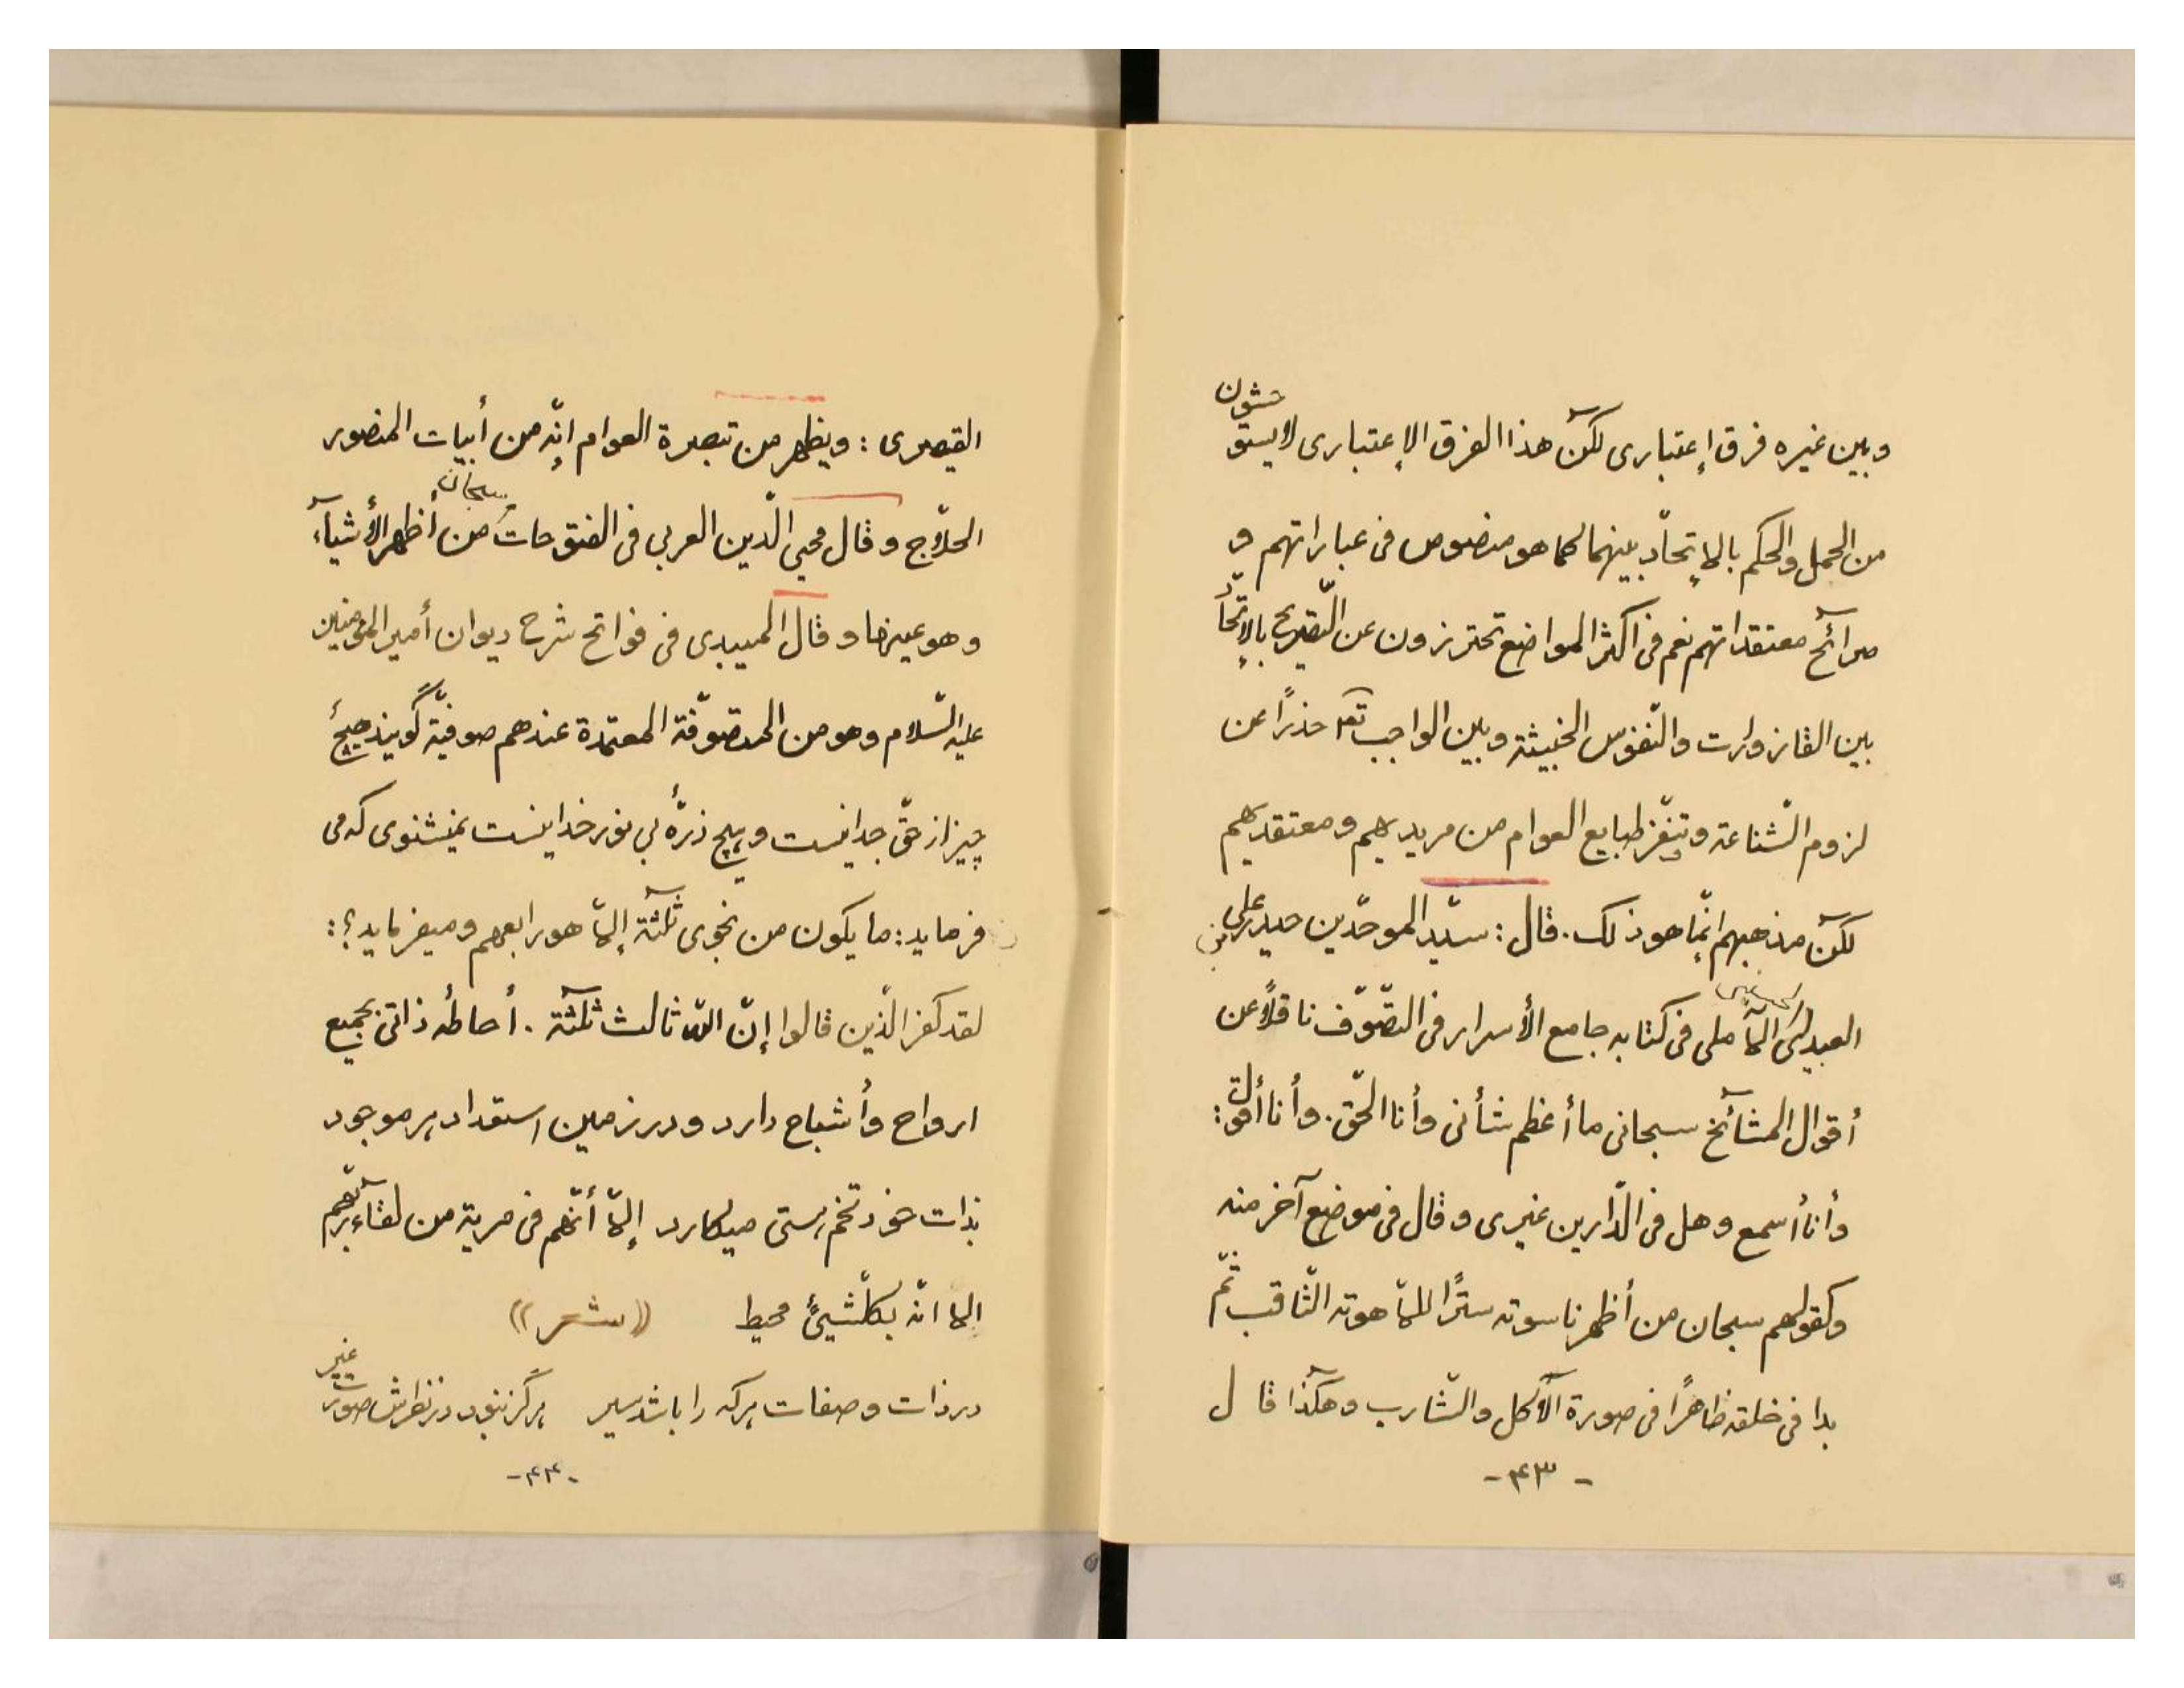 وبین غیره فرق إعتباری لکنّ هذا الفرق الإعتباری لا یستوحشون
من الحمل والحکم بالإتحاد بینهما کما هو منصوص فی عباراتهم و
صرائح معتقداتهم نعم فی اکثر المواضع تحترزون عن التّصریح بالإتّحاد
بین القازورات والنّفوس الخبیثة وبین الواجب تعـ حذراً عن
لزوم الشّناعة وتنفّر طبایع العوام من مریدیهم ومعتقدیهم
لکنّ مذهبهم انّما هو ذلک. قال: سیّد الموحّدین حیدر بن علی
العبیدلی الآملی فی کتابه جامع الأسرار فی التصّوّف ناقلاً عن
أقوال المشآئخ سبحانی ما أعظم شأنی وأنا الحّق. وأنا أقول:
وأنا أسمع وهل فی الدّارین غیری وقال فی موضع آخر منه
وکقولهم سبحان من أظهر ناسوته ستراً للاهوته الثّاقب ثمّ
بدا فی خلقه ظاهراً فی صورة الآکل والشّارب وهکذا قال
- ۴۳ -
القیصری: ویظهر من تبصرة العوام انّه من أبیات المنصور
الحلّاج وقال محیی الّدین العربی فی الفتوحات سبحان من أظهر الأشیآء
وهو عینها وقال المیبدی فی فواتح شرح دیوان أمیر المؤمنین
علیه السّلام وهو من المتصوّفة المعتمدة عندهم صوفیّه گویند هیچ
چیز از حقّ جدا نیست وهیچ ذرّهٔ بی نور خدا نیست نمیشنوی که می
فرماید: ما یکون من نجوی ثلثة إلّا هو رابعهم ومیفرماید؟:
لقد کفر الّذین قالوا إنّ الله ثالث ثلثة. أحاطهٔ ذاتی بجمیع
ارواح وأشباح دارد و در زمین استعداد هر موجود
بذات خود تخم هستی میکارد إلّا أنّهم فی مریة من لقآء ربّهم
الا انّه بکلّشیئ محیط ((شعر))
در ذات وصفات هرکه را باشد سیر هرگز نبود در نظرش صورت غیر
-۴۴-